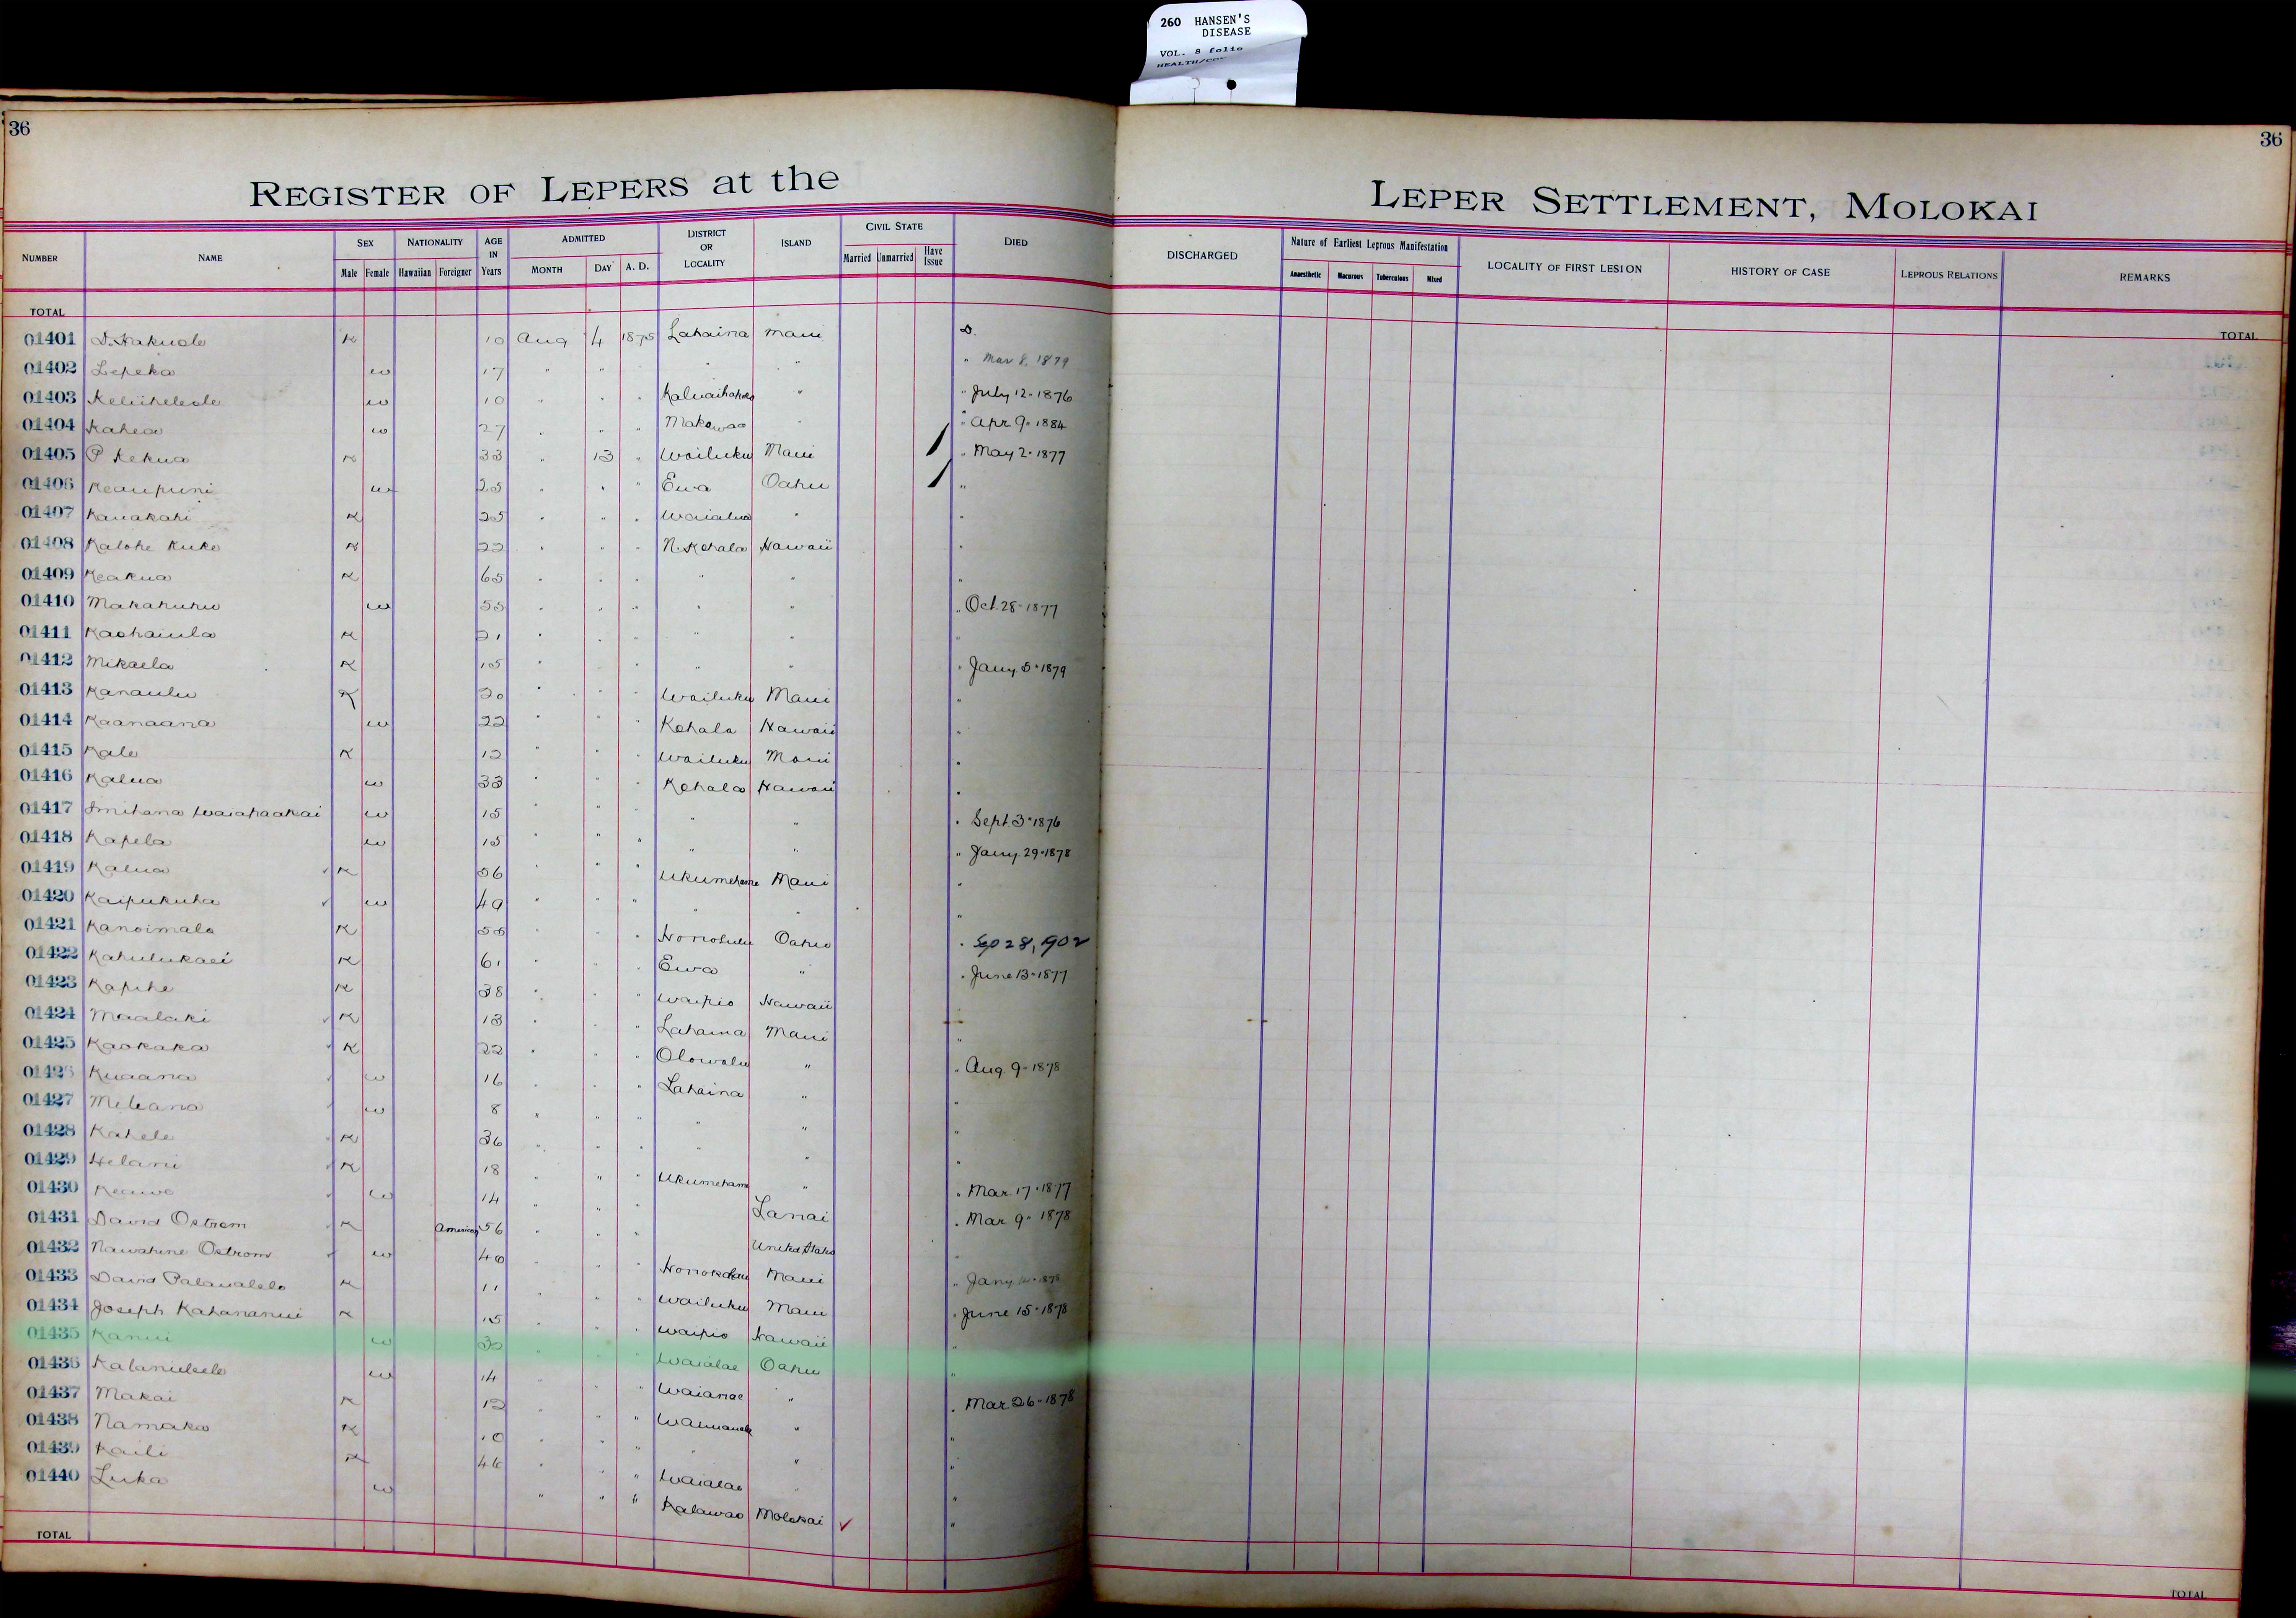 260 HANSEN'S
DISEASE
VOL. 8 folio
36
36
REGISTER OF LEPERS at the
LEPER SETTLEMENT, MOLOKAI
NUMBER NAME SEX Male Female NATIONALITY Hawaiian Foreigner AGE IN Years ADMITTED MONTH DAY A. D. DISTRICT OR LOCALITY ISLAND CIVIL STATE Married Unmarried Have Issue DIED
DISCHARGED Nature of Earliest Leprous Manifestation Anaesthetic Macurous Tuberculous Mixed LOCALITY OF FIRST LESION HISTORY OF CASE LEPROUS RELATIONS REMARKS
TOTAL
TOTAL
01401 D. Hakuole K 10 Aug 4 1875 Lahaina Maui D.
01402 Lepeka w 17 " " " " " Mar 8, 1879
01403 w 10 " " " " " July 12 - 1876
01404 Kahea w 27 " " " Makawao " " Apr 9 - 1884
01405 P Kekua K 33 " 13 " Wailuku Maui " May 2 - 1877
01406 Keaupuni w 25 " " " Ewa Oahu "
01407 Kauakahi K 25 " " " Waialua " "
01408 Kalohe Kuke K 22 " " " N. Kohala Hawaii "
01409 Keakua K 65 " " " " " "
01410 Makahuhu w 55 " " " " " " Oct. 28 - 1877
01411 Kaohaiula K 21 " " " " " "
01412 Mikaela K 15 " " " " " " Jany 5 - 1879
01413 Kanaulu K 20 " " " Wailuku Maui "
01414 Kaanaana w 22 " " " Kohala Hawaii "
01415 Kale K 12 " " " Wailuku Maui "
01416 Kalua w 33 " " " Kohala Hawaii "
01417 w 15 " " " " " " Sept. 3 - 1876
01418 Kapela w 15 " " " " " " Jany. 29 - 1878
01419 Kalua K 56 " " " Ukumehame Maui "
01420 Kaipukuha w 49 " " " " " "
01421 Kanoimalo K 55 " " " Honolulu Oahu " Sep 28, 1902
01422 Kahulukaei K 61 " " " Ewa " " June 13 - 1877
01423 Kapihe K 38 " " " Waipio Hawaii
01424 Maalaki K 13 " " " Lahaina Maui "
01425 Kaokaka K 22 " " " Olowalu " " Aug. 9 - 1878
01426 Kuaana w 16 " " " Lahaina " "
01427 Meleana w 8 " " " " " "
01428 Kahele K 36 " " " " " "
01429 Helani K 18 " " " Ukumehame " " Mar. 17 - 1877
01430 Keawe w 14 " " " Lanai " Mar. 9 - 1878
01431 David Ostrom K American 56 " " " United States "
01432 Nawahine Ostrom w 40 " " " Honokohau Maui " Jany
01433 David Palaualelo K 11 " " " Wailuku Maui " June 15 - 1878
01434 Joseph Kahananui K 15 " " " Waipio Hawaii "
01435 Kanui w 30 " " " Waialae Oahu "
01436 w 14 " " " Waianae " " Mar. 26 - 1878
01437 Makai K 12 " " " " "
01438 Namaka K 10 " " " " " "
01439 Kaili K 46 " " " Waialae " "
01440 Luka w " " " Kalawao Molokai "
TOTAL
TOTAL